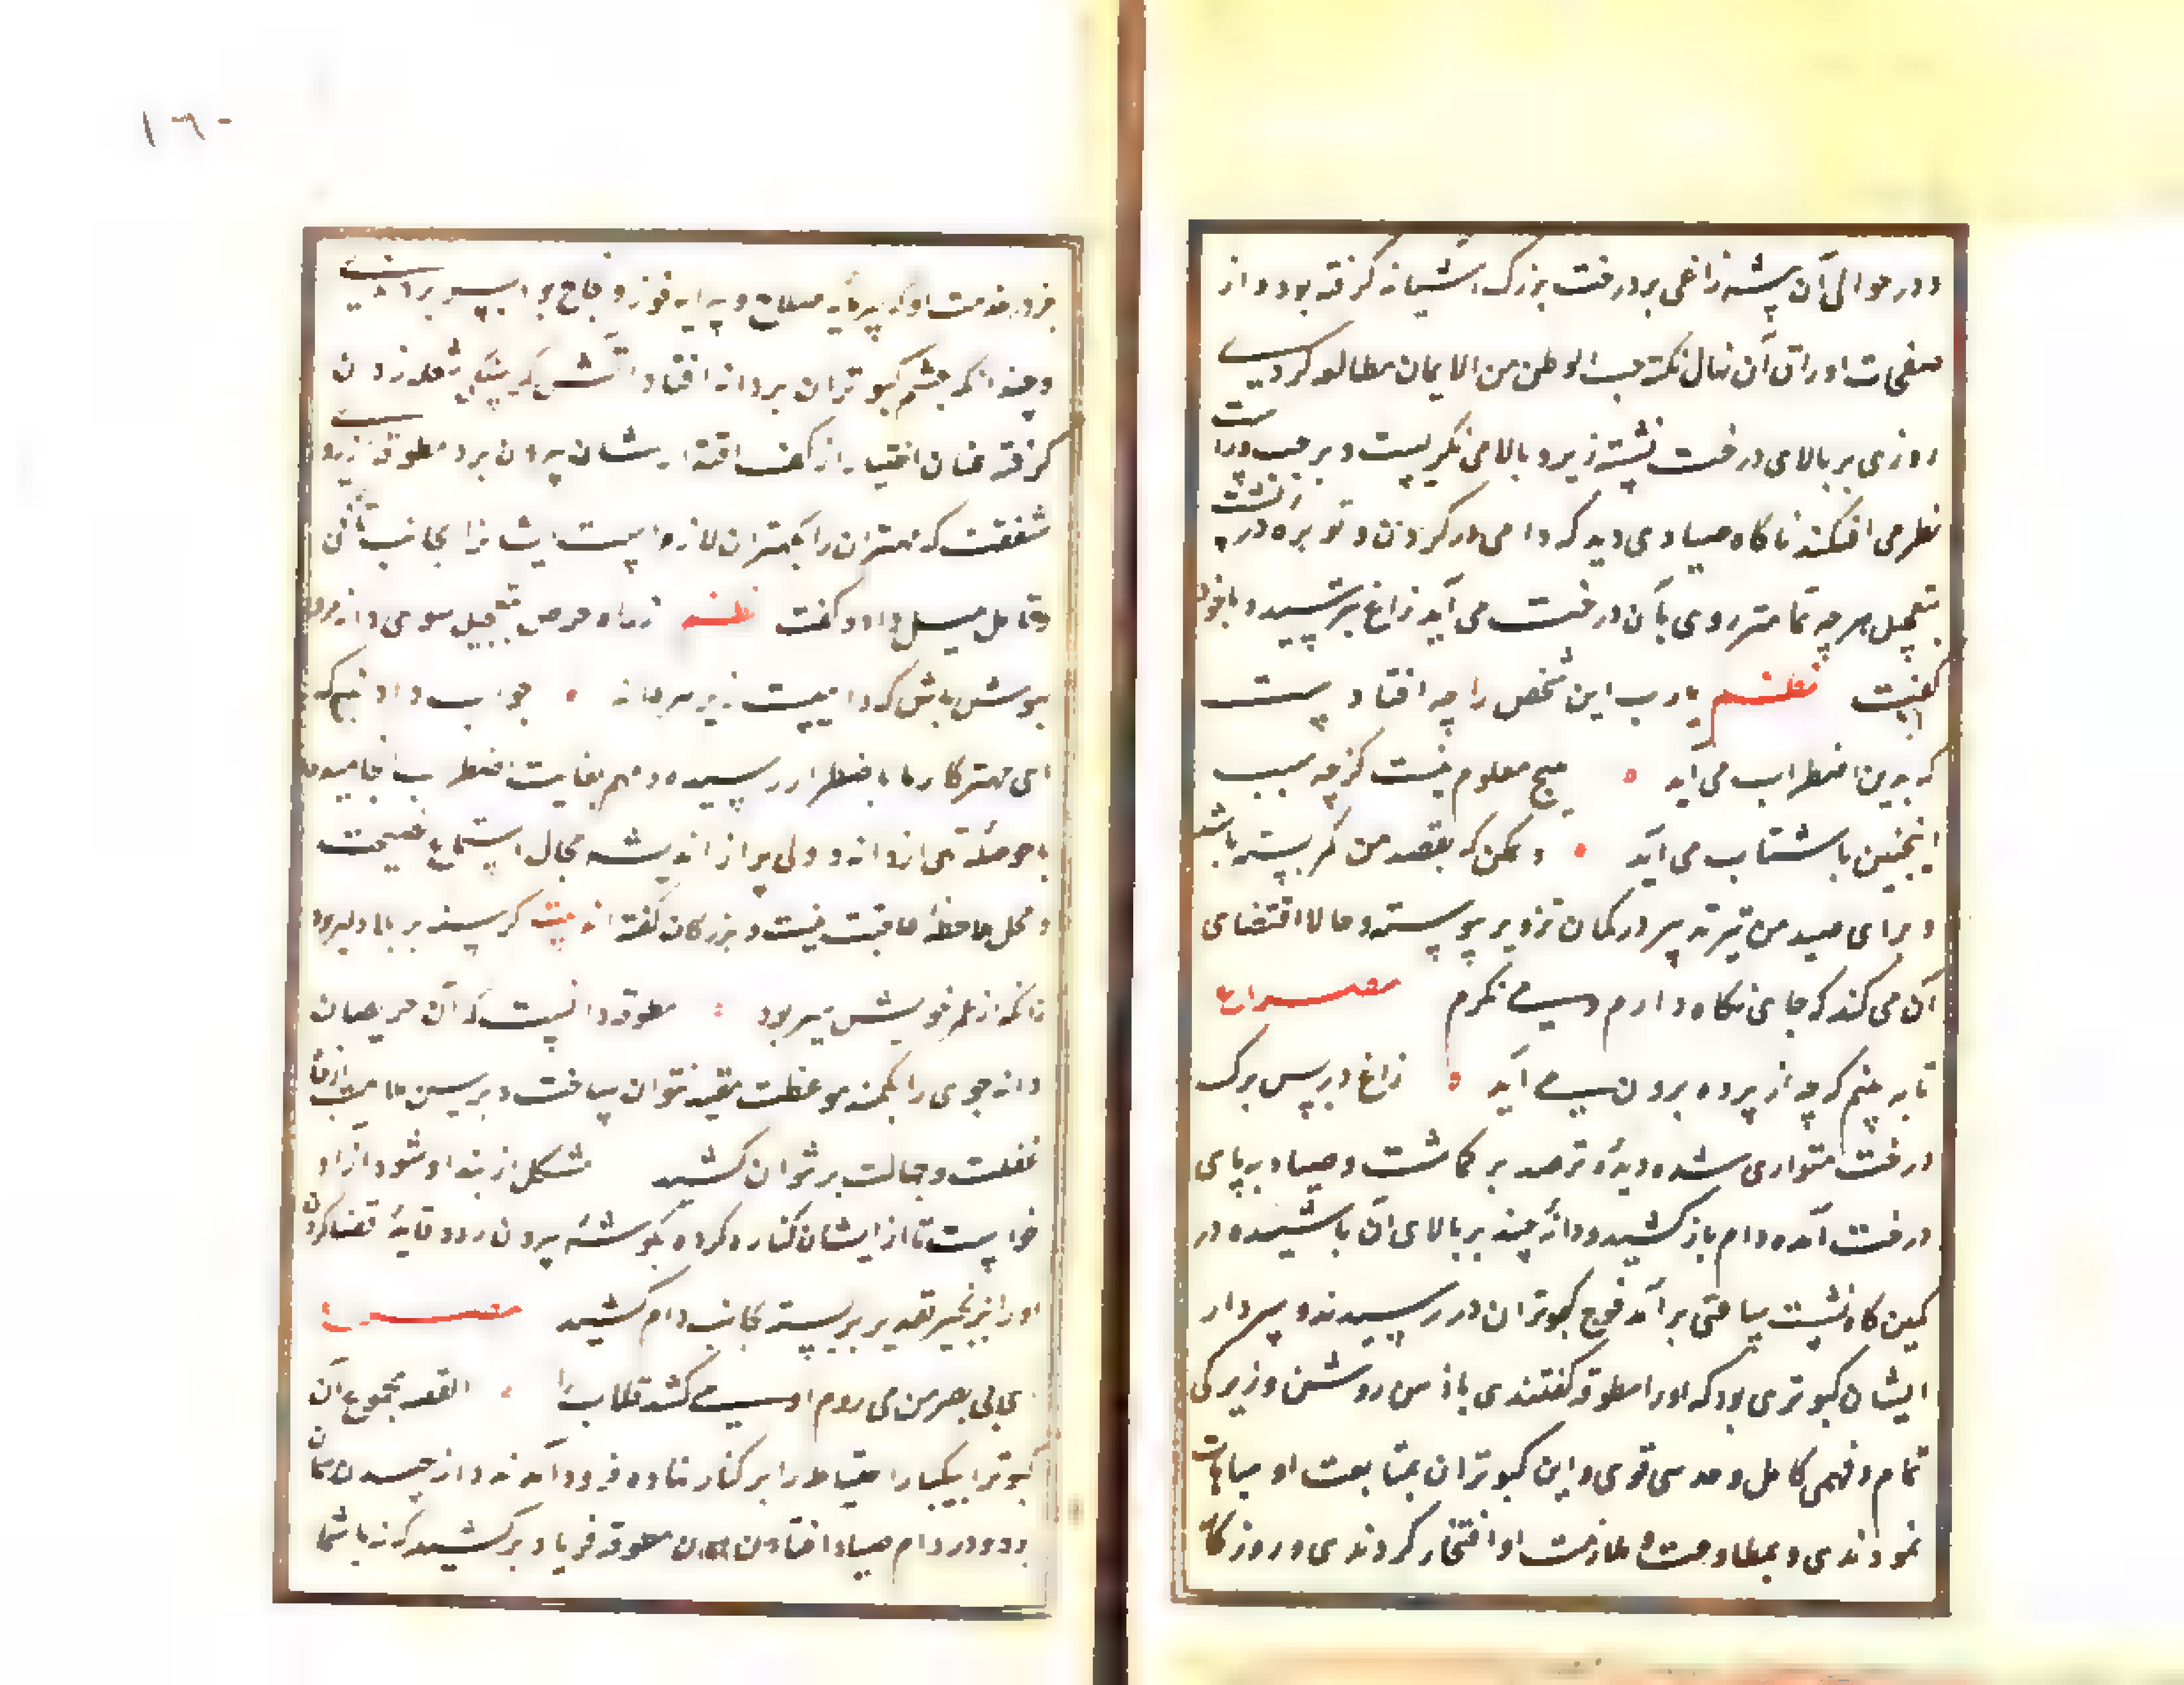 ودر حوالی آن بیشه زاغی بر درخت بزرگ آشیانه گرفته بود و از
صفحات اوراق آن نهال نکته حب الوطن من الایمان مطالعه کردی
روزی بر بالای درخت نشسته زیر و بالا می نگریست و بر چپ و راست
نظر می افکند ناگاه صیادی دید که دامی در گردن و توبره در پشت
بتعجیل هر چه تمامتر روی بآن درخت می آید زاغ بترسید و با خود
گفت نظم یا رب این شخص را چه افتادست
که بدین اضطراب می آید هیچ معلوم نیست کز چه سبب
اینچنین با شتاب می آید و یمکن که بقصد من کمر بسته باشد
و برای صید من تیر تدبیر در کمان تزویر پیوسته و حالا اقتضای
آن می کند که جای نگاه دارم و می نگرم مصراع
تا به بینم که چه از پرده برون می آید زاغ در پس برگ
درخت متواری شده دیده ترصد بر گماشت و صیاد به پای
درخت آمده دام باز کشید و دانه چند بر بالای آن پاشیده در
کمین گاه نشست ساعتی برآمد فوج کبوتران در رسیدند و سردار
ایشان کبوتری بود که او را مطوقه گفتندی با ذهن روشن و زیرکی
تمام و فهمی کامل و حدسی قوی و این کبوتران بمتابعت او مباهات
نمودندی و بمطاوعت و ملازمت او افتخار کردندی و روزگار
۱۶۰
جز در خدمت او که پیرایه صلاح و سرمایه فوز و نجاح بود بسر نبردندی
و چندانکه چشم کبوتران بر دانه افتاد آتش گرسنگی شعله زدن
گرفته عنان اختیار از کف اقتدار شان بیرون برد مطوقه از روی
شفقت که مهتران را بکهتران لازمست ایشانرا بجانب تانی
و تامل میل داد و گفت نظم ز راه حرص بتعجیل سوی دانه مرو
بهوش باش که دامیست زیر هر دانه جواب دادند که
ای مهتر کار ما باضطرار رسیده و مهم بغایت اضطراب انجامیده
با حوصله تهی از دانه و دلی پر از اندیشه مجال استماع نصیحت
و محل ملاحظه عاقبت نیست و بزرگان گفته اند بیت گرسنه بر بلا دلیر بود
زانکه از عمر خویش سیر بود مطوقه دانست که آن حریصان
دانه جوی را بکمند موعظت مقید نتوان ساخت و برسن ملامت از چاه
غفلت و جهالت بر نتوان کشید مشکل از بند او شود ازاد
خواست تا از ایشان کناره کرده بگوشه بیرون رود قاید قضا گردن
او را بزنجیر تقدیر بر بسته بجانب دام کشید مصرع
ای بی بصر من می روم او می کشد قلاب را القصه مجموع آن
کبوتران بیکبار احتیاط را بر کنار نهاده فرود آمدند و از چیدن همان
بود و در دام صیاد افتادن همان مطوقه فریاد بر کشید که نه با شما